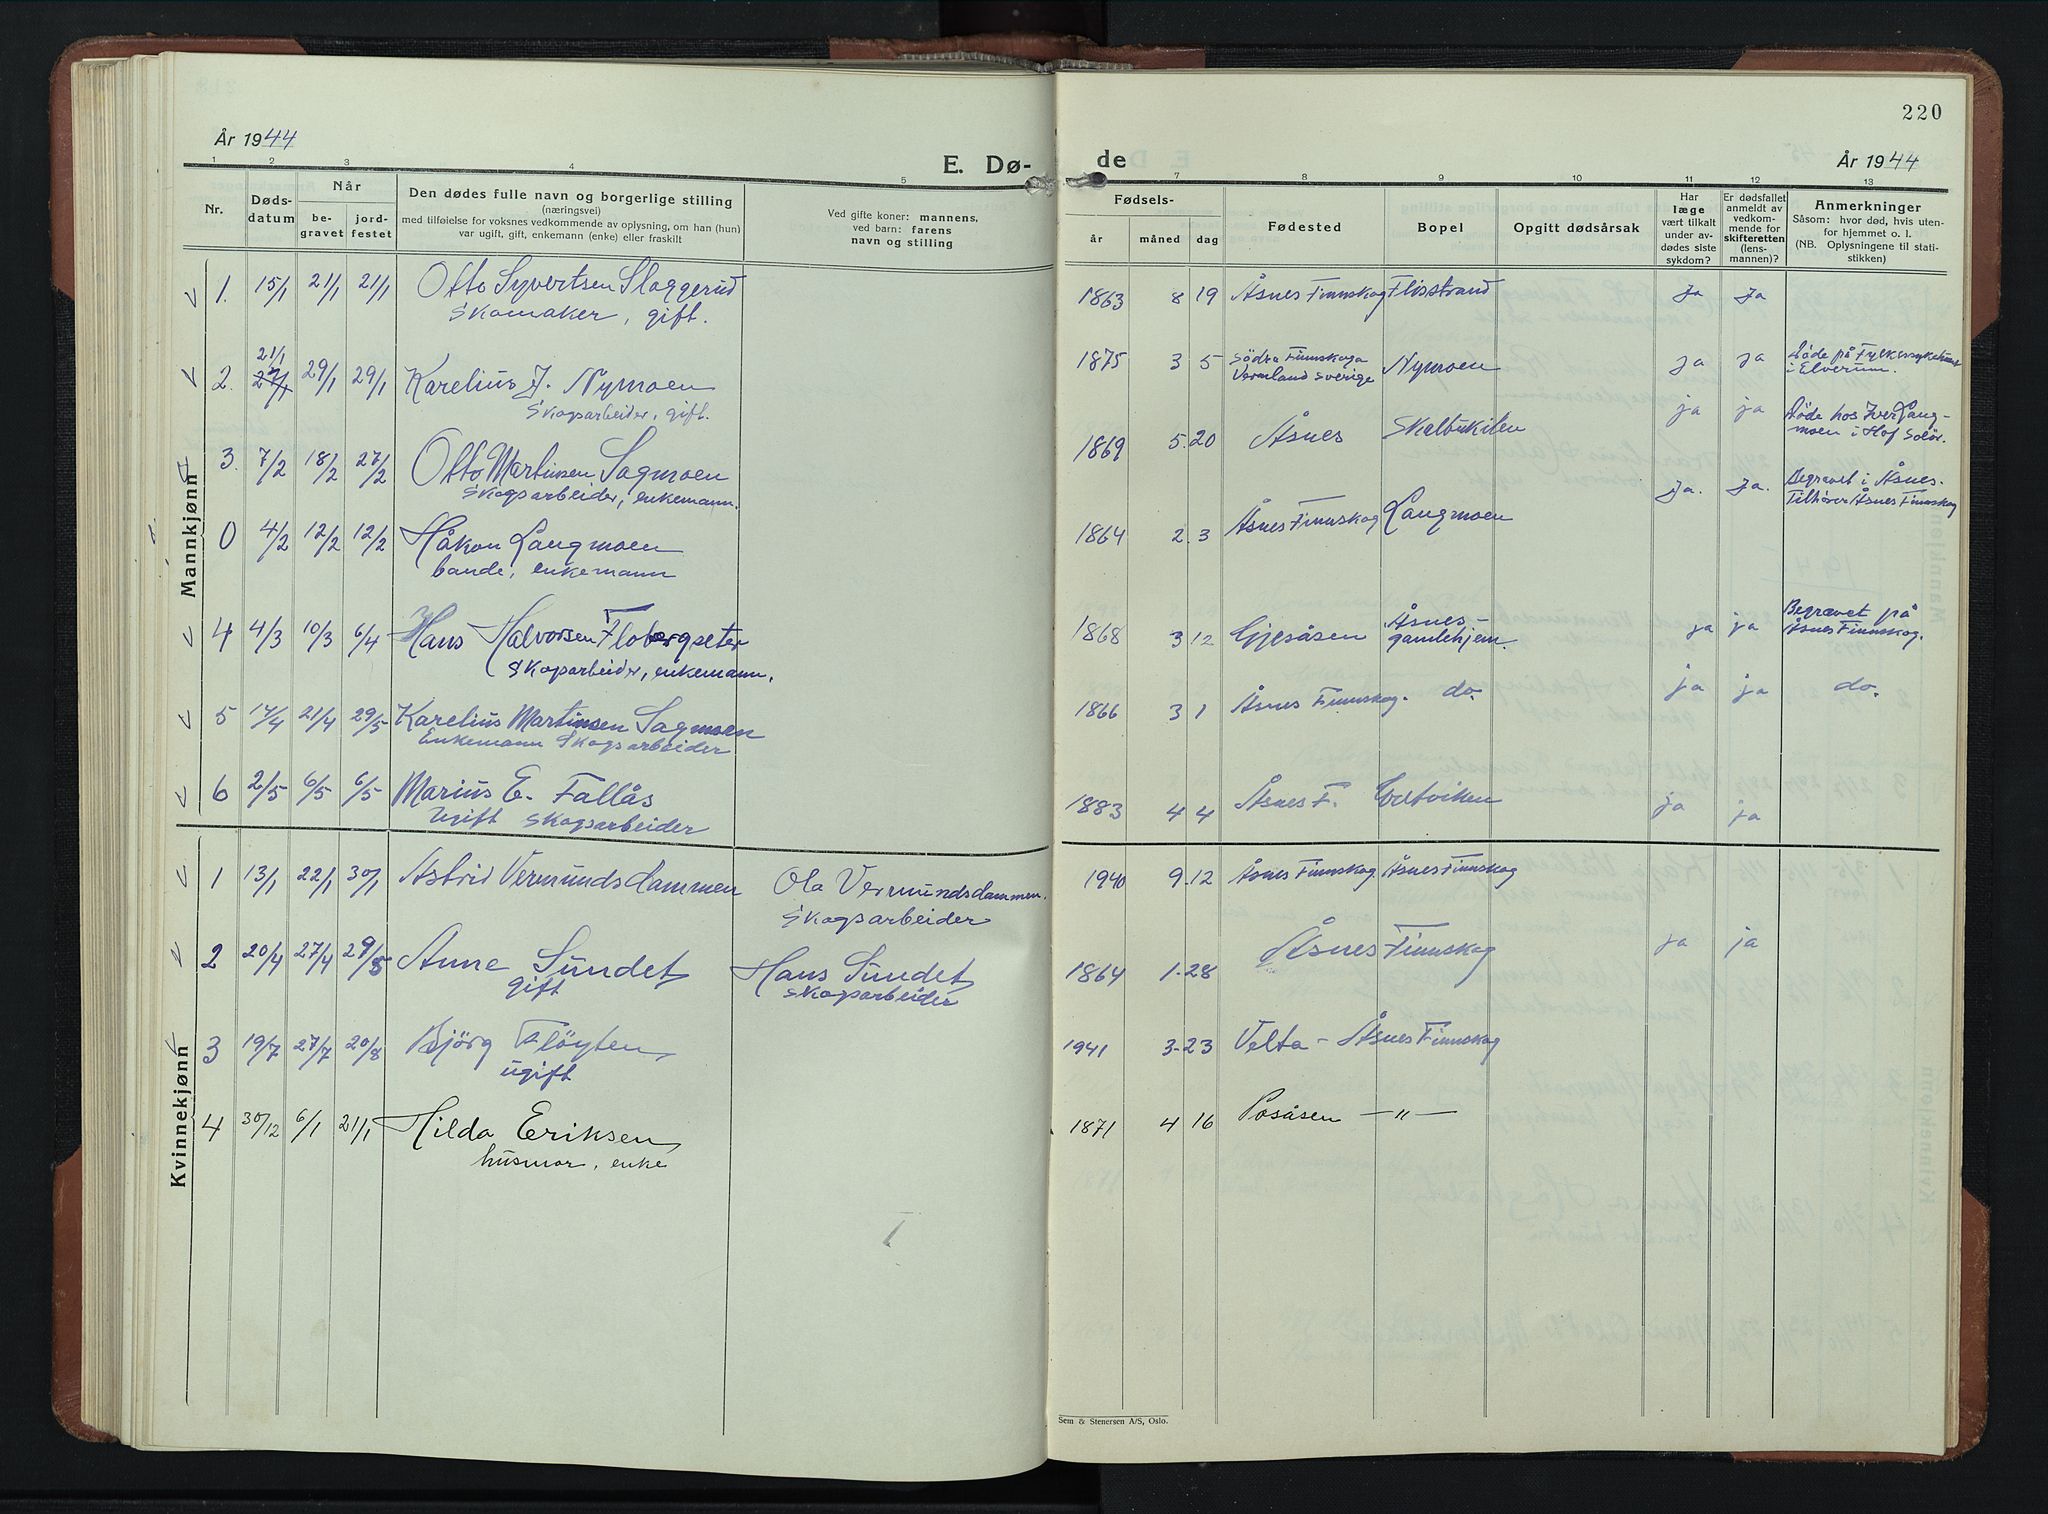 220
År 1944
E. Dø-
de
År 1944
1 2 3 4 5 7 8 9 10 11 12 13
Nr.
Døds-
datum
Når
be-
gravet
jord-
festet
Den dødes fulle navn og borgerlige stilling
(næringsvei)
med tilføielse for voksnes vedkommende av oplysning, om han (hun)
var ugift, gift, enkemann (enke) eller fraskilt
Ved gifte koner: mannens,
ved barn: farens
navn og stilling
Fødsels-
år måned dag
Fødested
Bopel
Opgitt dødsårsak
Har
læge
vært tilkalt
under av-
dødes siste
sykdom?
Er dødsfallet
anmeldt av
vedkom-
mende for
skifteretten
(lens-
mannen)?
Anmerkninger
Såsom: hvor død, hvis uten-
for hjemmet o. l.
(NB. Oplysningene til stati-
stikken)
Mannkjønn
1. 15/1 21/1 21/1 Otto Syvertsen Sloggerud 1863 8 19 Åsnes Finnskog Flisstrand Ja Ja
Skomaker, gift.
21/1
2. 29/1 29/1 Karelius J. Nymoen 1875 3 5 Södra Finnskoga Nymoen ja ja Döde på Fylkessykehuset
Vermland Sverige
i Elverum.
Skogsarbeider, gift.
3. 7/2 18/2 27/2 Otto Martinsen Sagmoen 1869 5. 20 Åsnes ja ja Döde hos Iver Lang-
moen i Hof Solör.
Skogsarbeider, enkemann.
0 4/2 12/2 12/2 Håkon Langmoen 1864 2. 3 Åsnes Finnskog Langmoen Ja. Ja. Begravet i Åsnes.
Tilhører Åsnes Finnskog
bonde, enkemann
4 4/3 10/3 6/4 Hans Halvorsen Flobergseter 1868 3 12 Gjesåsen Åsnes- ja ja Begravet på
gamlehjem. Åsnes Finnskog.
Skogsarbeider, enkemann.
5 14/4 21/4 29/5 Karelius Martinsen Sagmoen 1866 3 1 Åsnes Finnskog. do. ja ja do.
Enkemann Skogsarbeider
6 2/5 6/5 6/5 Marius E. Fallås 1883 4 4 Åsnes F. ja ja
Ugift Skogsarbeider
Kvinnekjønn
1 13/1 22/1 30/1 Astrid Vermundsdammen Ola Vermundsdammen. 1940 9. 12 Åsnes Finnskog Åsnes Finnskog
Skogsarbeider
2 20/4 27/4 29/5 Anne Sundet Hans Sundet 1864 1. 28 Åsnes Finnskog ja ja
gift Skogsarbeider
3 19/7 27/7 20/8 Björg Flöyten 1941 3. 23 Velta - Åsnes Finnskog
ugift
4 30/12 6/1 21/1 Hilda Eriksen 1871 4 16 Posåsen —"—
husmor, enke
Sem & Stenersen A/S, Oslo.